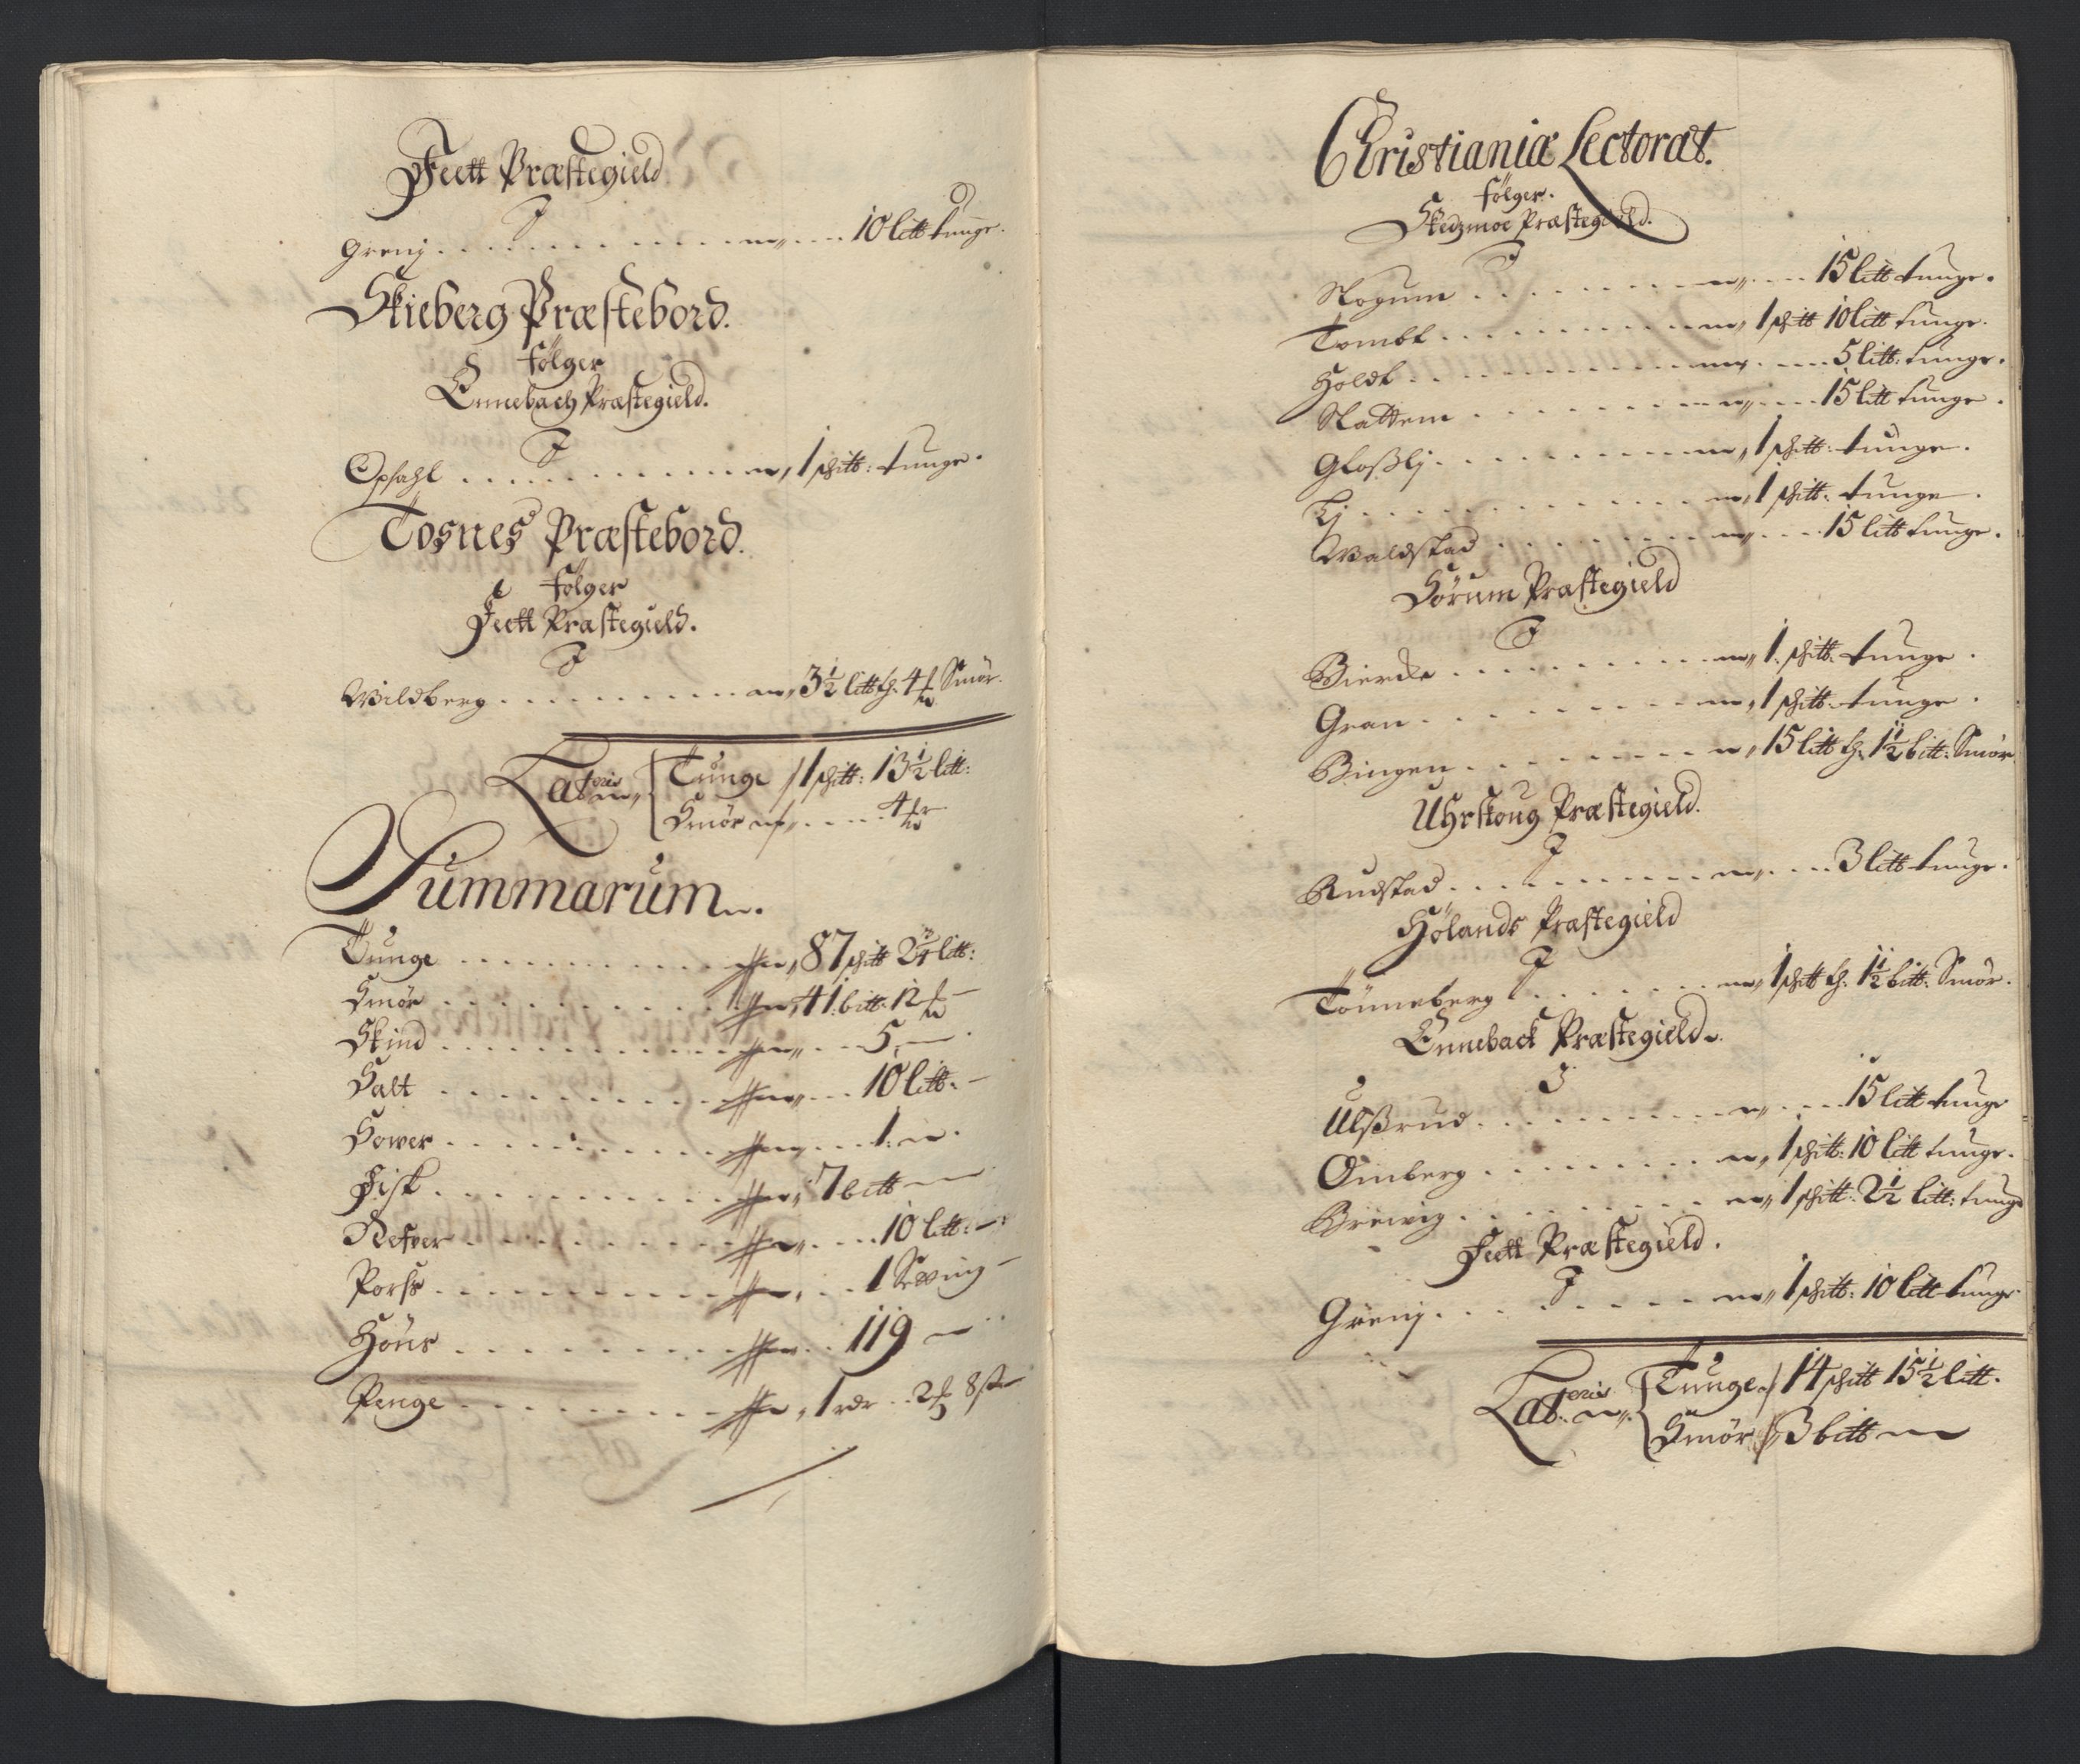 Feett Præstegield
I
Grenj . . . . . . . . . . . 10 litt tunge.
Skieberg Præstebord.
følger
Ennebach Præstegield.
I
Opsahl . . . . . . . . . . 1 schitt: tunge.
Tosnes Præstebord.
følger
Feett Præstegield.
I
Wildberg . . . . . . . . . 3½ litt h: 4 Smör.
Lateris Tunge 1 schitt: 13½ litt:
Smör . . . . 4
Summarum.
Tunge . . . . . . . . . . 87 schitt 2¾ litt:
Smör . . . . . . . . . 41 bitt: 12
Skind . . . . . . . . . . 5
Salt . . . . . . . . . . 10 litt:
Sower . . . . . . . . . 1.
Fisk . . . . . . . . . . 7 bitt
Nefver . . . . . . . . . 10 litt:
Porss . . . . . . . . . . 1
Höns . . . . . . . . . . 119
Penge . . . . . . . . . 1 rdr . . 2 8 s
Christianiæ Lectorat.
følger.
Skedzmoe Præstegield.
I
Skogum . . . . . . . . . 15 litt tunge.
Tombt . . . . . . . . . 1 schitt 10 litt tunge.
Holdt . . . . . . . . . . 5 litt: tunge.
Nattem . . . . . . . . . 15 litt tunge.
Gloßlj . . . . . . . . . 1 schitt: tunge.
Lj . . . . . . . . . . . 1 schitt: tunge.
Waldstad . . . . . . . . 15 litt tunge.
Sörum Præstegield
I
Biercke . . . . . . . . . 1. schitt: tunge.
Gran . . . . . . . . . . 1 schitt: tunge.
Bingen . . . . . . . . . 15 litt h: 1½ bitt: Smör
Uhrskoug Præstegield.
I
Rudstad . . . . . . . . . 3 litt tunge.
Hölands Præstegield
I
Tönneberg . . . . . . . . 1 schitt h: 1½ bitt: Smör.
Enneback Præstegield.
I
Ulßrud . . . . . . . . . 15 litt tunge
Omberg . . . . . . . . . 1 schitt: 10 litt tunge.
Brewig . . . . . . . . . 1 schitt: 2½ litt: tunge
Feett Præstegield.
I
Grenj . . . . . . . . . 1 schitt: 10 litt tunge
Lateris Tunge 14 schitt 15½ litt.
Smör 3 bitt